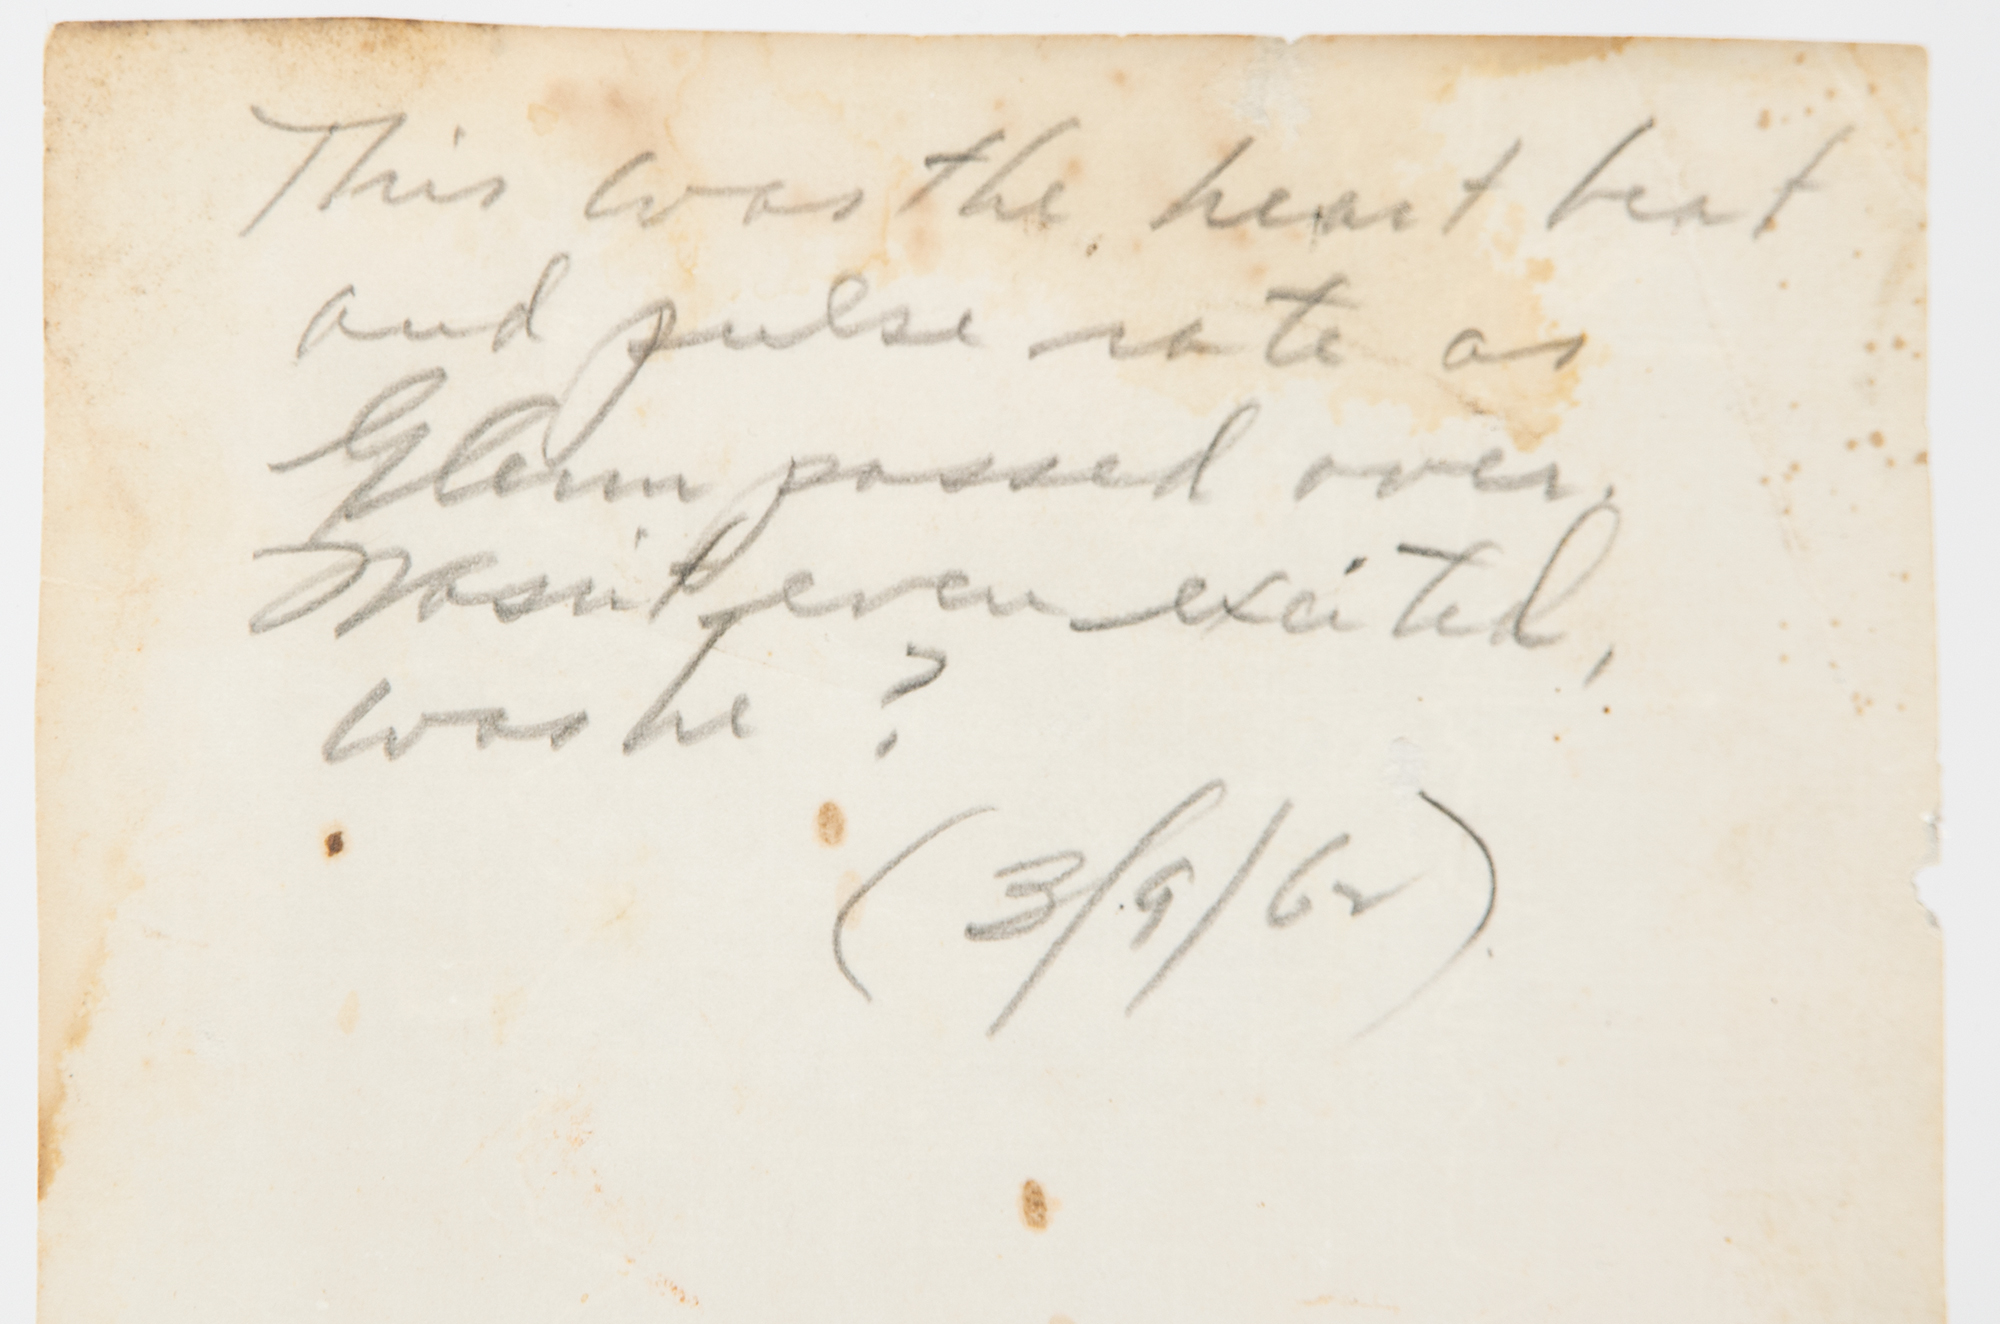 This was the heart beat
and pulse rate as
Glenn passed over.
Wasn't even excited,
was he?
(3/9/62)